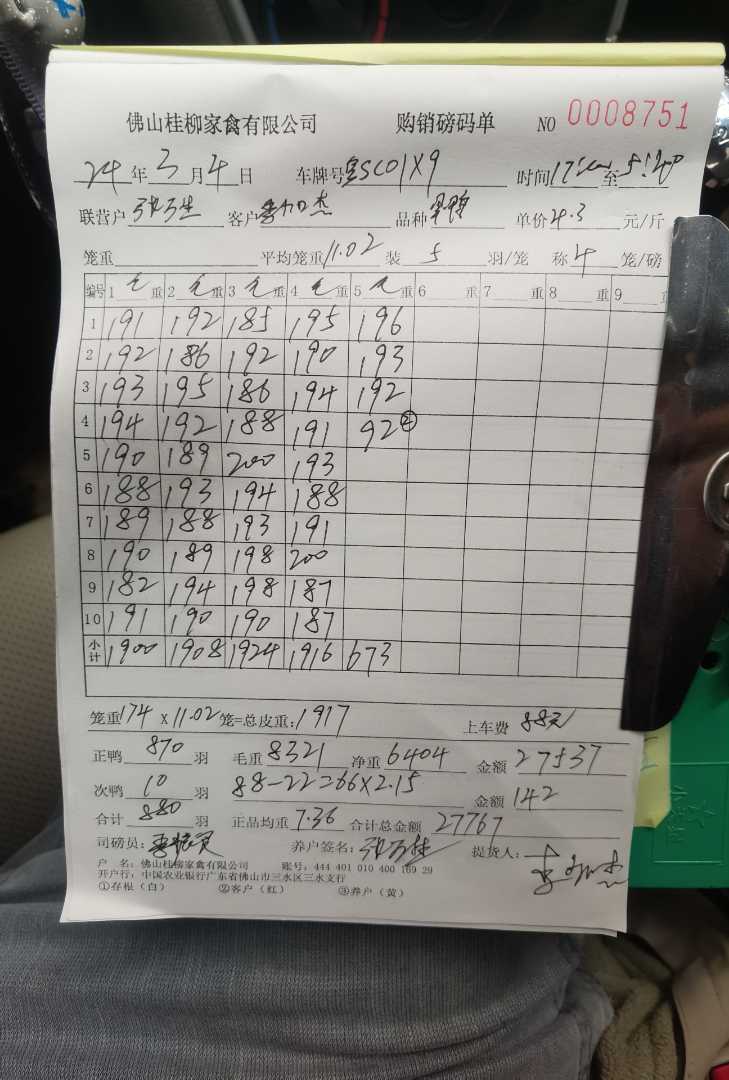 佛山桂柳家禽有限公司 购销磅码单 NO 0008751
24年3月4日 车牌号 SC01X9 时间 至
联营户 客户 杰 品种 单价4.3 元/斤
笼重 平均笼重11.02 装 5 羽/笼 称4 笼/磅
编号 1 毛重 2 毛重 3 毛重 4 毛重 5 毛重 6 重 7 重 8 重 9
1 191 192 185 195 196
2 192 186 192 190 193
3 193 195 186 194 192
4 194 192 188 191 92②
5 190 189 200 193
6 188 193 194 188
7 189 188 193 191
8 190 189 198 200
9 182 194 198 187
10 191 190 190 187
小计 1900 1908 1924 1916 673
笼重174 x 11.02 笼=总皮重:1917 上车费 88元
正鸭 870 羽 毛重8321 净重6404 金额27537
次鸭 10 羽 88-22=66X2.15 金额142
合计 880 羽 正品均重7.36 合计总金额27767
司磅员: 养户签名: 提货人:
户 名: 佛山桂柳家禽有限公司 账号: 444 401 010 400 169 29
开户行: 中国农业银行广东省佛山市三水区三水支行
①存根（白） ②客户（红） ③养户（黄）